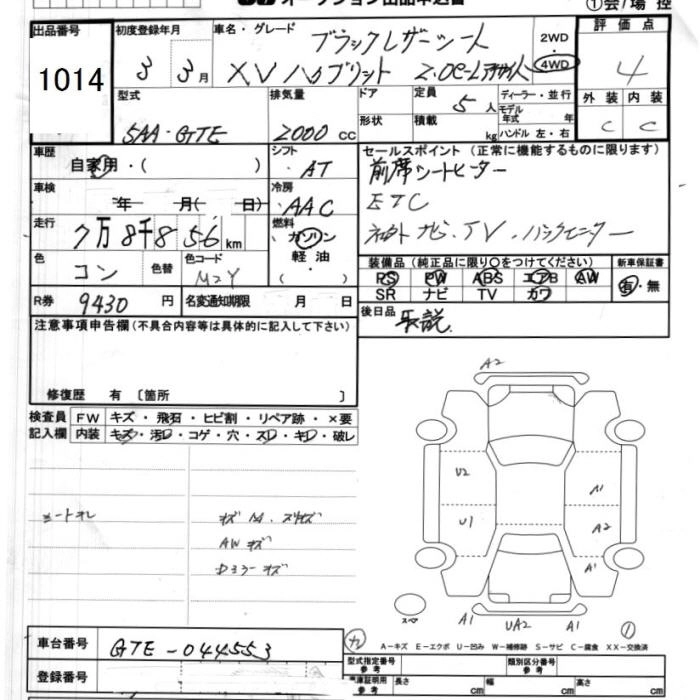 オークション出品申込書
①会/場 控
出品番号
1014
初度登録年月
3 3月
車名・グレード
ブラックレザーシート
XV ハイブリット 2.0e-Lアイサイト
2WD
4WD
評価点
4
外装 内装
C C
型式
5AA-GTE
排気量
2000 cc
ドア
形状
定員
5人
積載
kg
ディーラー・並行
モデル年式 年
ハンドル 左・右
車歴
自家用・( )
シフト
AT
セールスポイント(正常に機能するものに限ります)
前席シートヒーター
ETC
ナビ・TV・バックモニター
車検
年 月( 日)
冷房
AAC
走行
7万8千856km
燃料
ガソリン
軽油
・( )
色
コン
色替
色コード
M2Y
装備品(純正品に限り○をつけてください)
PS PW ABS エアB AW
SR ナビ TV カワ
新車保証書
有・無
R券 9430円
名変通知期限 月 日
後日品
取説
注意事項申告欄(不具合内容等は具体的に記入して下さい)
修復歴 有 〔箇所 〕
検査員記入欄
FW キズ・飛石・ヒビ割・リペア跡・×要
内装 キズ・汚レ・コゲ・穴・スレ・キレ・破レ
シートスレ
キズ
AWキズ
Dミラーキズ
A2
U2
A1
U1
A2
A1
スペア
A1
UA2
A1
①
A-キズ E-エクボ U-凹み W-補修跡 S-サビ C-腐食 XX-交換済
車台番号
GTE-044553
登録番号
型式指定番号
参考
類別区分番号
参考
車庫証明用
参考
長さ cm
幅 cm
高さ cm